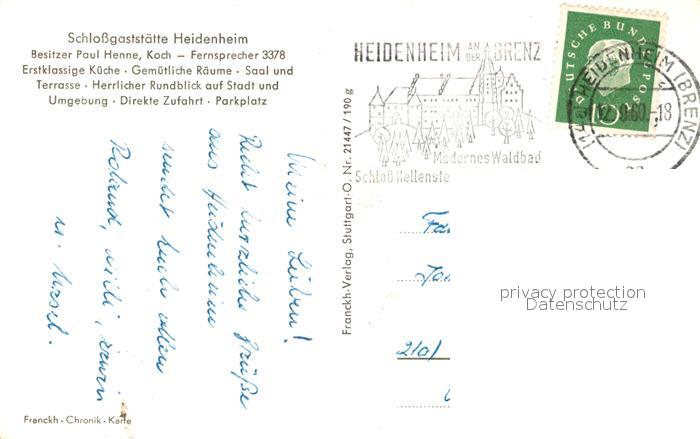 Schloßgaststätte Heidenheim
Besitzer Paul Henne, Koch — Fernsprecher 3378
Erstklassige Küche · Gemütliche Räume · Saal und
Terrasse · Herrlicher Rundblick auf Stadt und
Umgebung · Direkte Zufahrt · Parkplatz
Meine Lieben!
Recht herzliche Grüße
aus Heidenheim
sendet Euch allen
Roland, Willi,
u. Ursel.
Franckh-Chronik-Karte
Franckh-Verlag, Stuttgart-O. Nr. 21447 / 190 g
HEIDENHEIM AN DER BRENZ
Modernes Waldbad
Schloß Hellenste
DEUTSCHE BUNDESPOST
10
HEIDENHEIM (BRENZ)
60.-18
Fa
21a)
privacy protection
Datenschutz